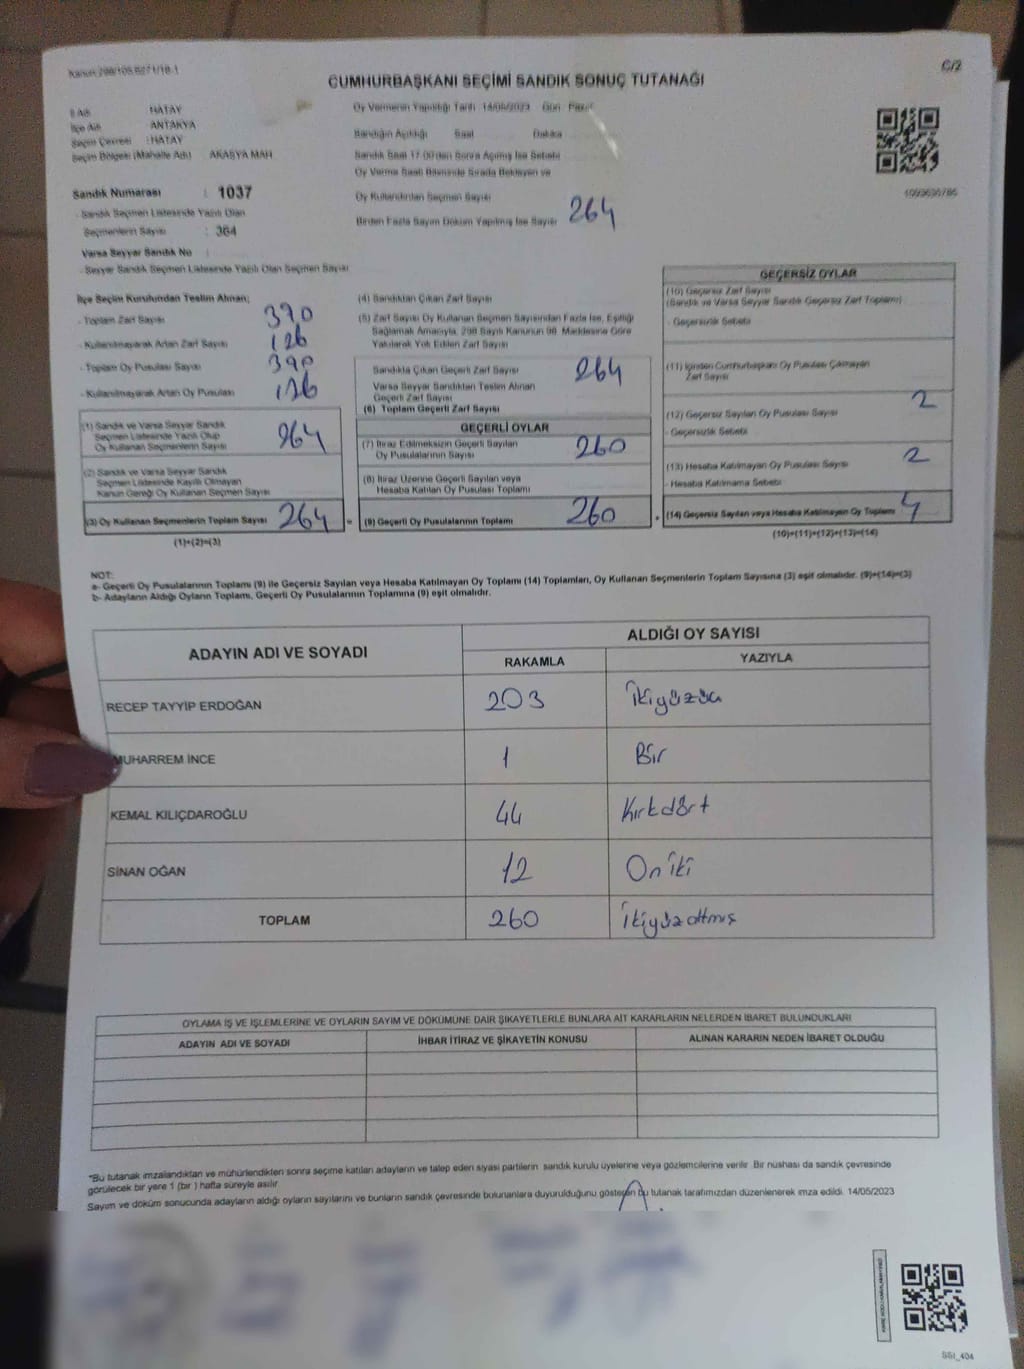 Kanun:298/105,B271/18-1
C/2
CUMHURBAŞKANI SEÇİMİ SANDIK SONUÇ TUTANAĞI
İl Adı : HATAY
İlçe Adı : ANTAKYA
Seçim Çevresi : HATAY
Seçim Bölgesi (Mahalle Adı) AKASYA MAH
Sandık Numarası : 1037
- Sandık Seçmen Listesinde Yazılı Olan
Seçmenlerin Sayısı : 364
Varsa Seyyar Sandık No :
- Seyyar Sandık Seçmen Listesinde Yazılı Olan Seçmen Sayısı
Oy Vermenin Yapıldığı Tarih 14/05/2023 Gün Pazar
Sandığın Açıldığı Saat Dakika
Sandık Saat 17.00'den Sonra Açılmış İse Sebebi
Oy Verme Saati Bitiminde Sırada Bekleyen ve
Oy Kullandırılan Seçmen Sayısı
Birden Fazla Sayım Döküm Yapılmış İse Sayısı 264
İlçe Seçim Kurulundan Teslim Alınan;
- Toplam Zarf Sayısı 390
- Kullanılmayarak Artan Zarf Sayısı 126
- Toplam Oy Pusulası Sayısı 390
- Kullanılmayarak Artan Oy Pusulası 126
(1) Sandık ve Varsa Seyyar Sandık
Seçmen Listesinde Yazılı Olup
Oy Kullanan Seçmenlerin Sayısı 264
(2) Sandık ve Varsa Seyyar Sandık
Seçmen Listesinde Kayıtlı Olmayan
Kanun Gereği Oy Kullanan Seçmen Sayısı
(3) Oy Kullanan Seçmenlerin Toplam Sayısı 264
(1)+(2)=(3)
(4) Sandıktan Çıkan Zarf Sayısı
(5) Zarf Sayısı Oy Kullanan Seçmen Sayısından Fazla İse, Eşitliği
Sağlamak Amacıyla, 298 Sayılı Kanunun 98. Maddesine Göre
Yakılarak Yok Edilen Zarf Sayısı
Sandıkta Çıkan Geçerli Zarf Sayısı 264
Varsa Seyyar Sandıktan Teslim Alınan
Geçerli Zarf Sayısı
(6) Toplam Geçerli Zarf Sayısı
GEÇERLİ OYLAR
(7) İtiraz Edilmeksizin Geçerli Sayılan
Oy Pusulalarının Sayısı 260
(8) İtiraz Üzerine Geçerli Sayılan veya
Hesaba Katılan Oy Pusulası Toplamı
= (9) Geçerli Oy Pusulalarının Toplamı 260
GEÇERSİZ OYLAR
(10) Geçersiz Zarf Sayısı
(Sandık ve Varsa Seyyar Sandık Geçersiz Zarf Toplamı)
- Geçersizlik Sebebi
(11) İçinden Cumhurbaşkanı Oy Pusulası Çıkmayan
Zarf Sayısı
(12) Geçersiz Sayılan Oy Pusulası Sayısı 2
- Geçersizlik Sebebi
(13) Hesaba Katılmayan Oy Pusulası Sayısı 2
- Hesaba Katılmama Sebebi
+ (14) Geçersiz Sayılan veya Hesaba Katılmayan Oy Toplamı 4
(10)+(11)+(12)+(13)=(14)
NOT:
a- Geçerli Oy Pusulalarının Toplamı (9) ile Geçersiz Sayılan veya Hesaba Katılmayan Oy Toplamı (14) Toplamları, Oy Kullanan Seçmenlerin Toplam Sayısına (3) eşit olmalıdır. (9)+(14)=(3)
b- Adayların Aldığı Oyların Toplamı, Geçerli Oy Pusulalarının Toplamına (9) eşit olmalıdır.
ADAYIN ADI VE SOYADI
ALDIĞI OY SAYISI
RAKAMLA YAZIYLA
RECEP TAYYİP ERDOĞAN 203 İkiyüzüç
MUHARREM İNCE 1 Bir
KEMAL KILIÇDAROĞLU 44 Kırkdört
SİNAN OĞAN 12 On iki
TOPLAM 260 İkiyüzaltmış
OYLAMA İŞ VE İŞLEMLERİNE VE OYLARIN SAYIM VE DÖKÜMÜNE DAİR ŞİKAYETLERLE BUNLARA AİT KARARLARIN NELERDEN İBARET BULUNDUKLARI
ADAYIN ADI VE SOYADI İHBAR İTİRAZ VE ŞİKAYETİN KONUSU ALINAN KARARIN NEDEN İBARET OLDUĞU
*Bu tutanak imzalandıktan ve mühürlendikten sonra seçime katılan adayların ve talep eden siyasi partilerin sandık kurulu üyelerine veya gözlemcilerine verilir. Bir nüshası da sandık çevresinde
görülecek bir yere 1 (bir ) hafta süreyle asılır.
Sayım ve döküm sonucunda adayların aldığı oyların sayılarını ve bunların sandık çevresinde bulunanlara duyurulduğunu gösteren bu tutanak tarafımızdan düzenlenerek imza edildi. 14/05/2023
SSt_404